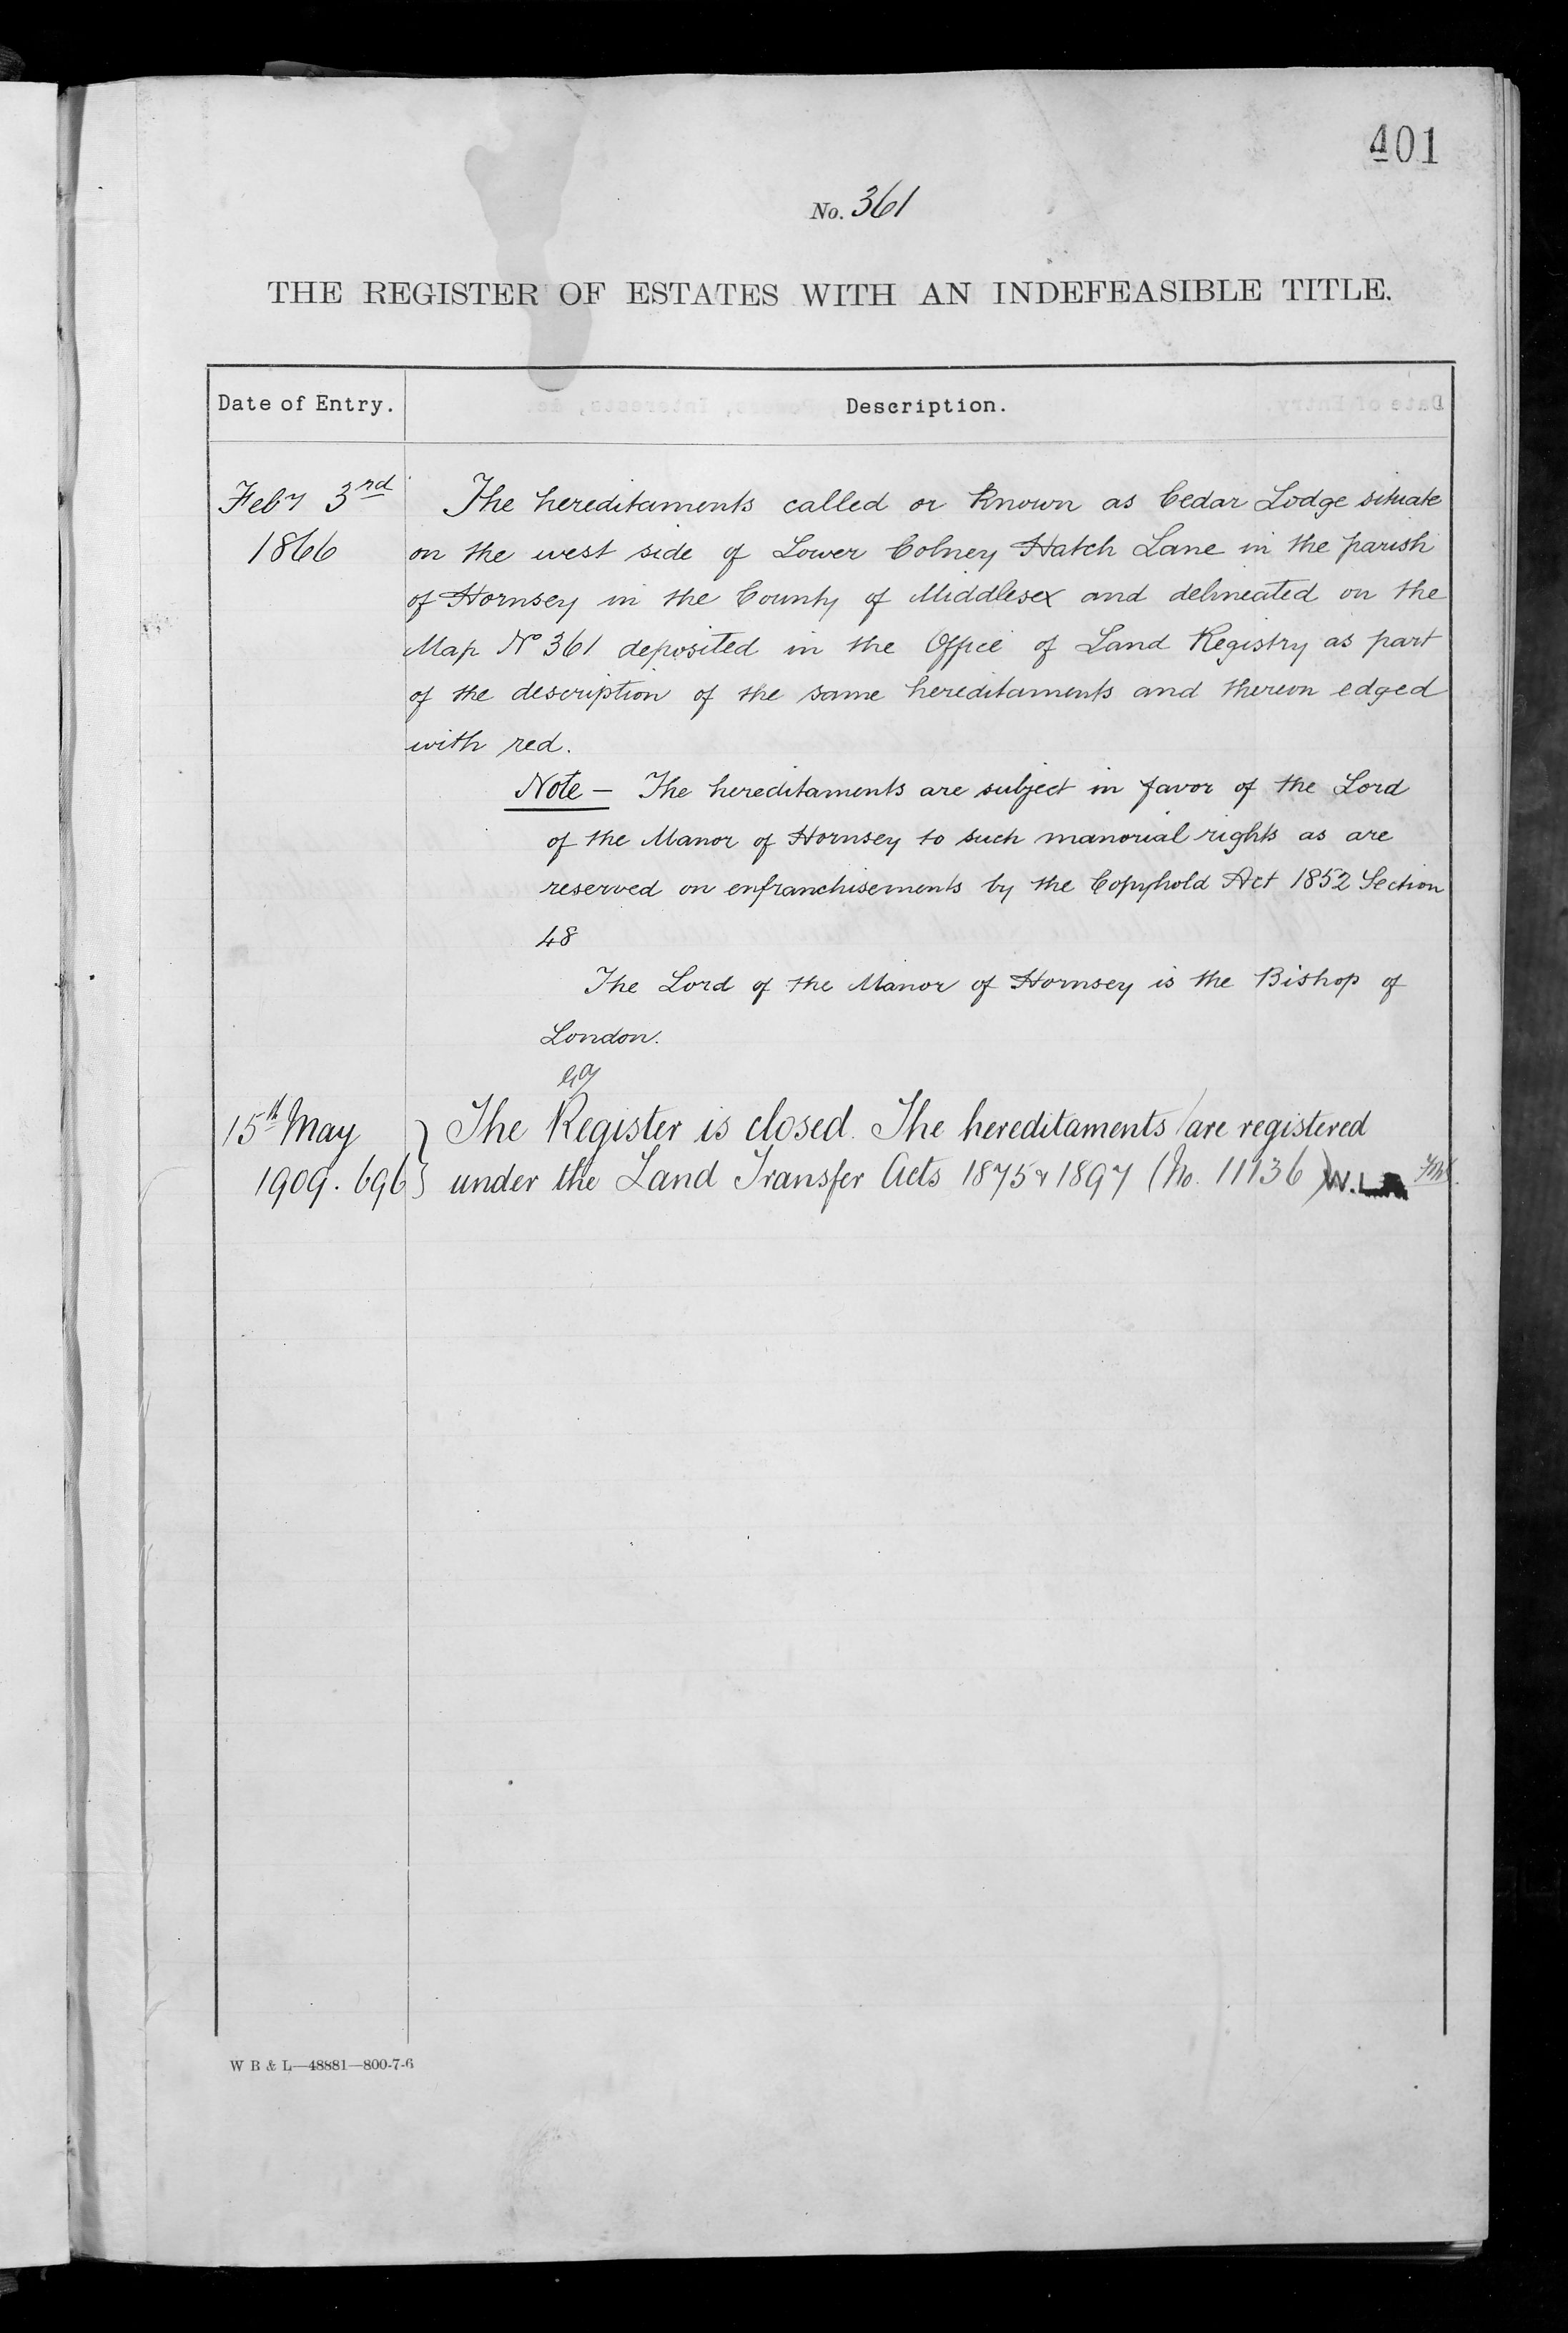 401
No. 361
THE REGISTER OF ESTATES WITH AN INDEFEASIBLE TITLE.
Date of Entry. Description.
Feby 3rd The hereditaments called or known as Cedar Lodge situate
1866 on the west side of Lower Colney Hatch Lane in the parish
of Hornsey in the County of Middlesex and delineated on the
Map No 361 deposited in the Office of Land Registry as part
of the description of the same hereditaments and thereon edged
with red.
Note - The hereditaments are subject in favor of the Lord
of the Manor of Hornsey to such manorial rights as are
reserved on enfranchisements by the Copyhold Act 1852 Section
48
The Lord of the Manor of Hornsey is the Bishop of
London.
15th May } The Register is closed. The hereditaments are registered
1909. 696 } under the Land Transfer Acts 1875 & 1897 (No. 11136)
W B & L—48881—800-7-6